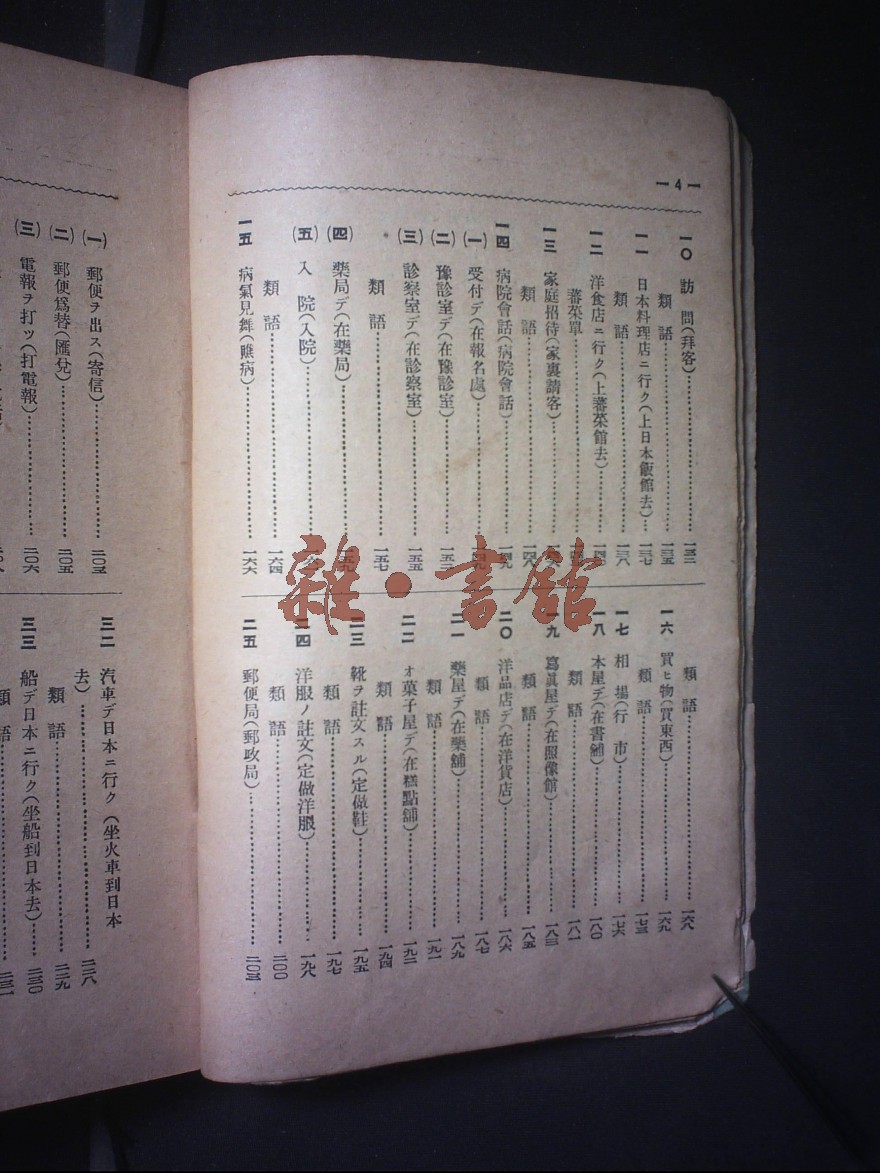 — 4 —
一〇 訪 問(拜客)……一三三
類 語……一三五
一一 日本料理店ニ行ク(上日本飯館去)…一三七
類 語……一三八
一二 洋食店ニ行ク(上蕃菜館去)……一四〇
蕃菜單……
一三 家庭招待(家裏請客)……
類 語……一四八
一四 病院會話(病院會話)……一四九
(一) 受付デ(在報名處)……一四九
(二) 豫診室デ(在豫診室)……
(三) 診察室デ(在診察室)……一五五
類 語……一五七
(四) 藥局デ(在藥局)……
(五) 入 院(入院)……
類 語……一六四
一五 病氣見舞(瞧病)……一六六
類 語……一六八
一六 買ヒ物(買東西)……一六九
類 語……一七三
一七 相 場(行 市)……一七六
一八 本屋デ(在書鋪)……一八〇
類 語……一八一
一九 寫眞屋デ(在照像館)……一八三
類 語……一八五
二〇 洋品店デ(在洋貨店)……一八六
類 語……一八七
二一 藥屋デ(在藥舖)……一八九
類 語……一九一
二二 オ菓子屋デ(在糕點舖)……一九二
類 語……一九四
二三 靴ヲ註文スル(定做鞋)……一九五
類 語……一九七
二四 洋服ノ註文(定做洋服)……一九八
類 語……二〇〇
二五 郵便局(郵政局)……二〇三
(一) 郵便ヲ出ス(寄信)……二〇三
(二) 郵便爲替(匯兌)……二〇五
(三) 電報ヲ打ツ(打電報)……二〇六
三二 汽車デ日本ニ行ク(坐火車到日本
去)……二二八
類 語……二二九
三三 船デ日本ニ行ク(坐船到日本去)……二三〇
類 語……二三一
雜·書館